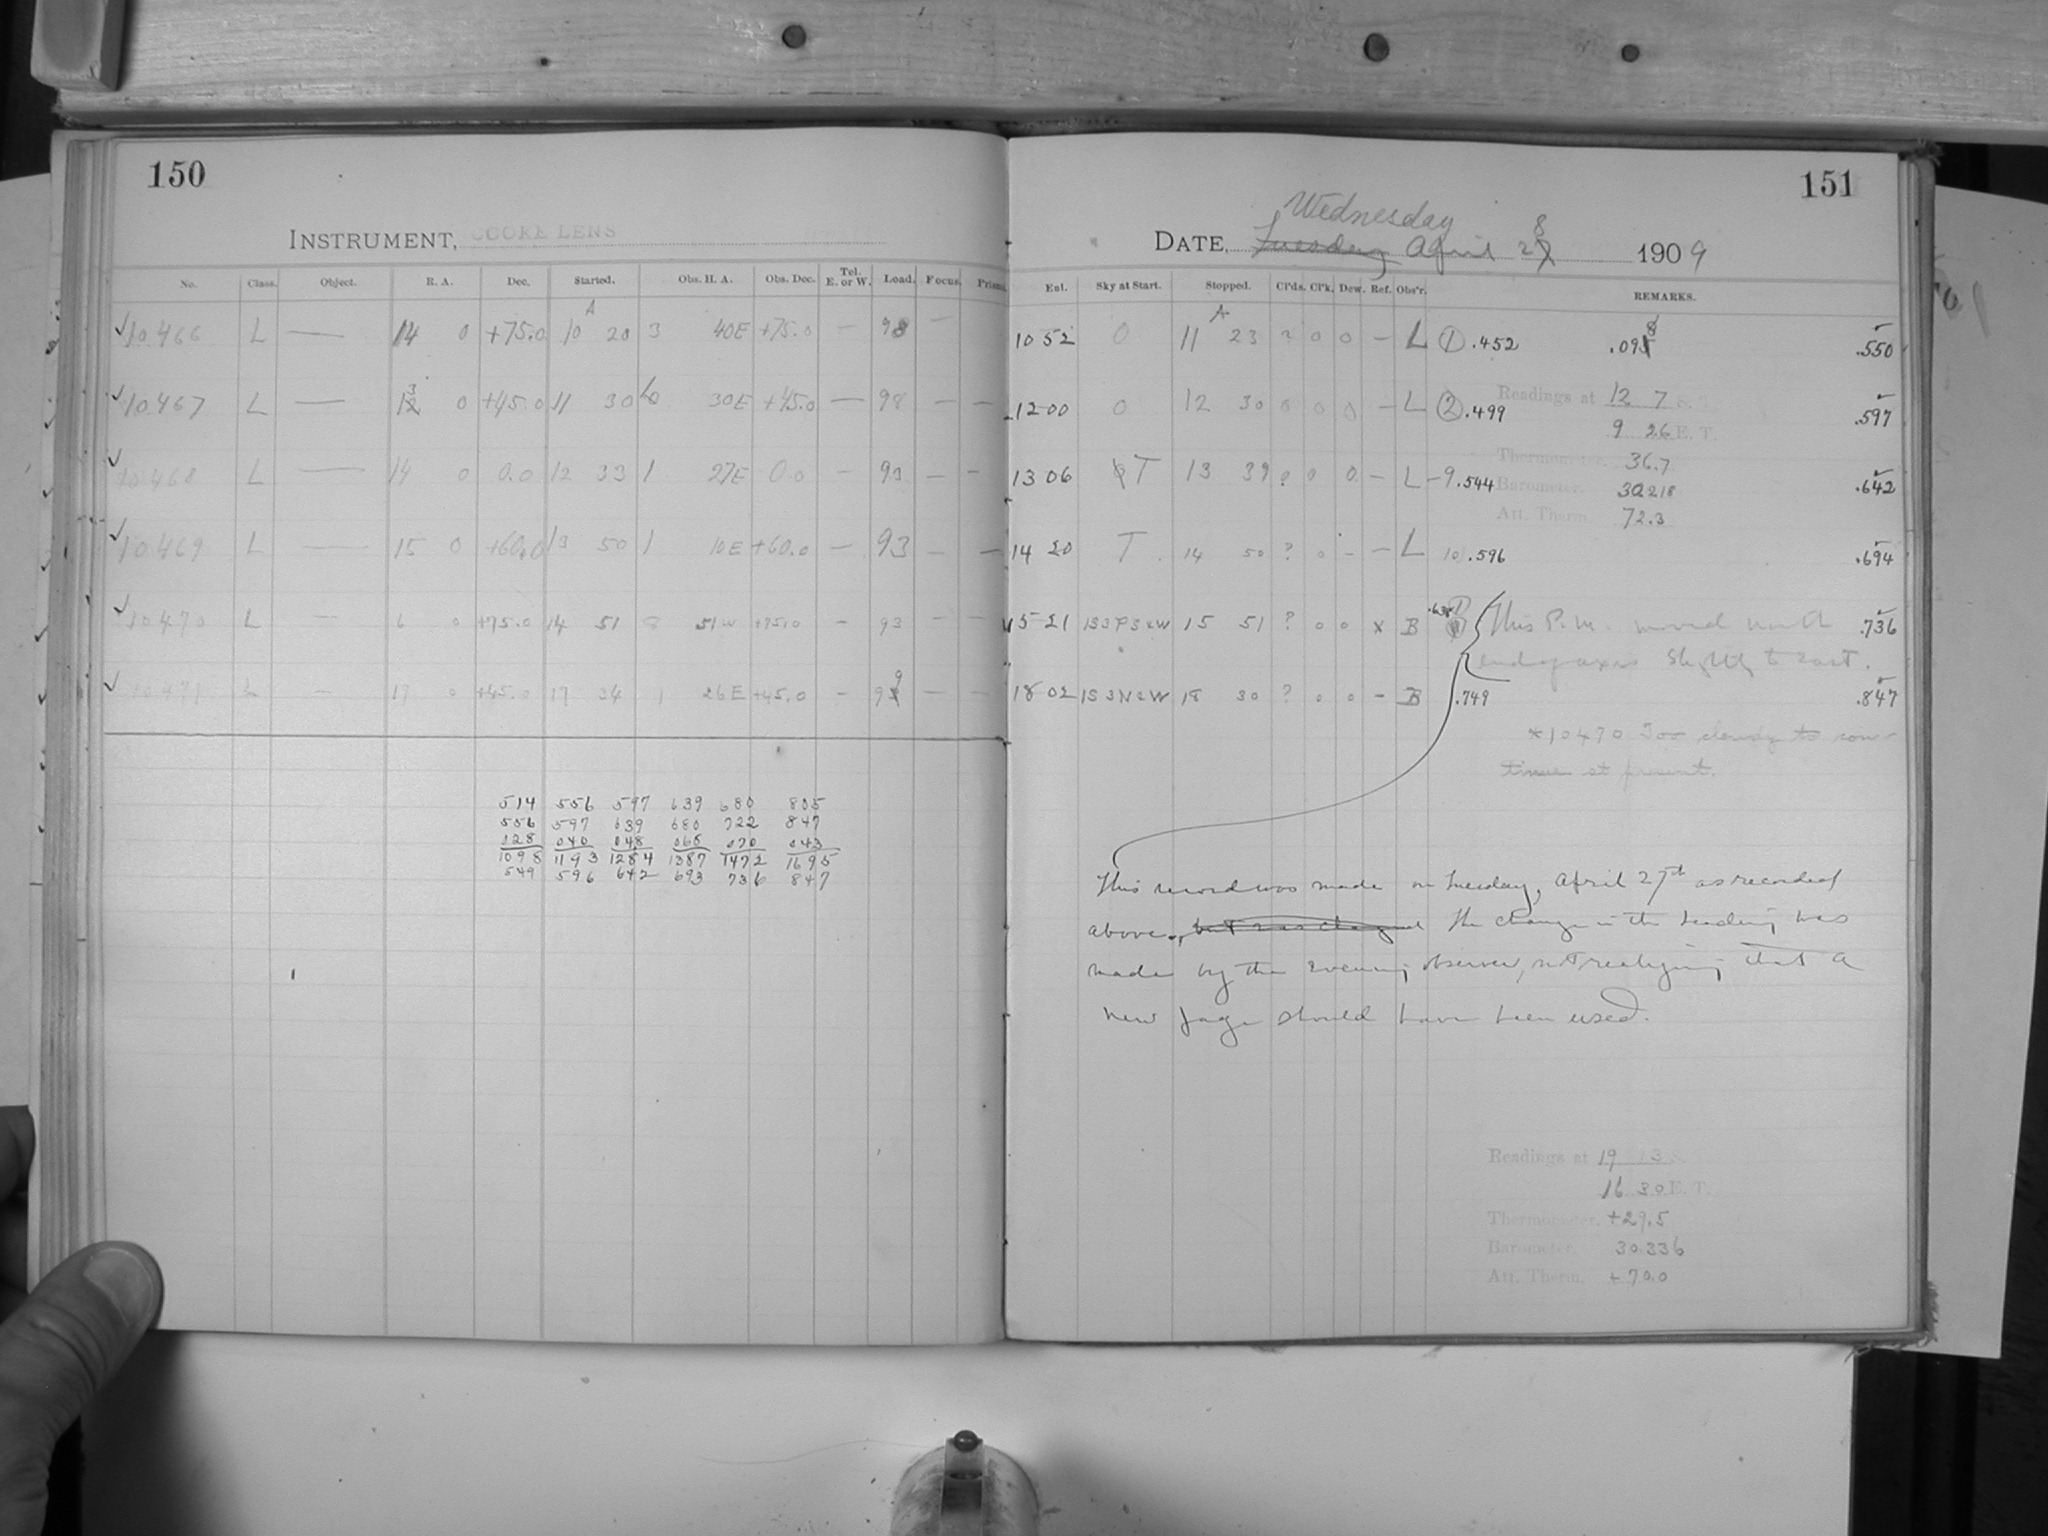 150
INSTRUMENT, COOKE LENS
No. Class. Object. R. A. Dec. Started. Obs. H. A. Obs. Dec. Tel. E. or W. Load. Focus. Prism.
10466 L — 14 0 +75.0 10 20 3 40E +75.0 — 98 —
10467 L — 13 0 +45.0 11 30 30E +45.0 — 98 — —
10468 L — 14 0 0.0 12 33 1 27E 0.0 — 93 — —
10469 L — 15 0 +60.0 13 50 1 10E +60.0 — 93 — —
10470 L — 6 0 +75.0 14 51 8 51W +75.0 — 93 — —
10471 L — 17 0 +45.0 17 34 1 26E +45.0 — 99 — —
514 556 597 639 680 805
556 597 639 680 722 847
028 040 048 068 070 043
1098 1193 1284 1387 1472 1695
549 596 642 693 736 847
151
Wednesday
DATE, Tuesday April 28 1909
Ent. Sky at Start. Stopped. Cl'ds. Cl'k. Dew. Ref. Obs'r. REMARKS.
10 52 0 11 23 ? 0 0 — L 1 .452 .098 .550
12 00 0 12 30 0 0 0 — L 2 .499 .597
Readings at 12 7
9 26 E. T.
13 06 T 13 39 0 0 0 — L —9.544 .642
Thermometer. 36.7
Barometer. 30.218
Att. Therm. 72.3
14 20 T 14 50 ? 0 - — L 10 .596 .694
15 21 1S3P3 W 15 51 ? 0 0 x B .638 This P.M. moved north .736
end of axis slightly to east.
18 02 1S3N2W 18 30 ? 0 0 — B .749 .847
*10470 Too cloudy to con-
tinue at present.
This record was made on Tuesday, April 27th as recorded
above, but was changed The change in the heading was
made by the evening observer, not realizing that a
new page should have been used.
Readings at 19 13
16 30 E. T.
Thermometer. +29.5
Barometer. 30.336
Att. Therm. +70.0